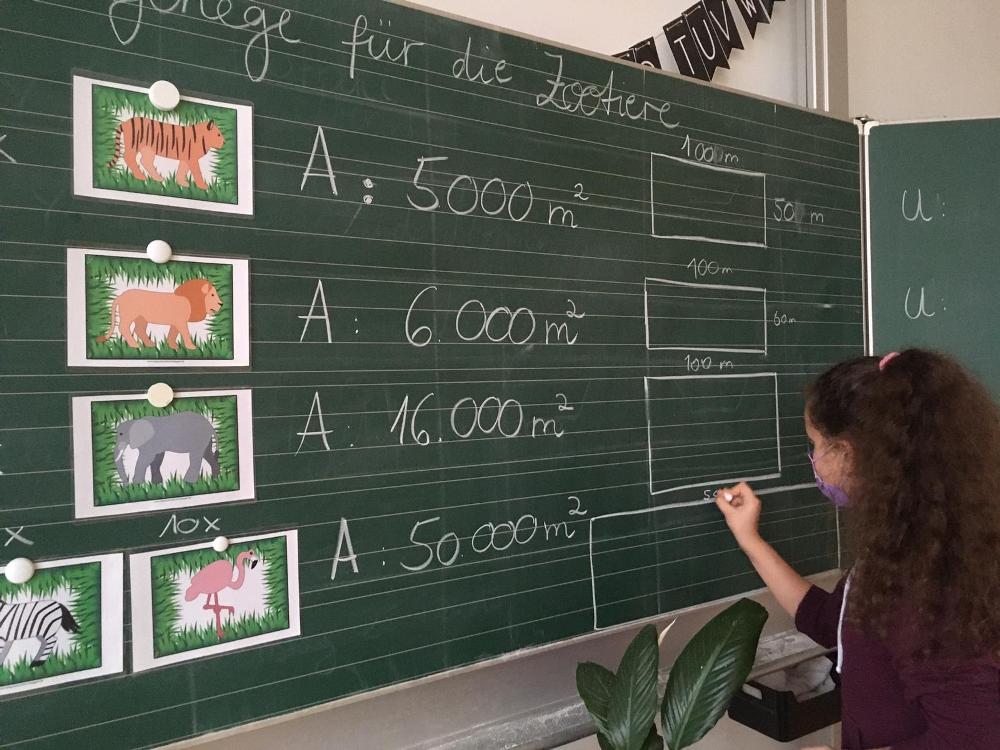 für die Zootiere
TUVW
A: 5000 m²
100m
50 m
U:
A: 6.000m²
100m
60m
U:
A: 16.000m²
100 m
x
10x
A: 50.000m²